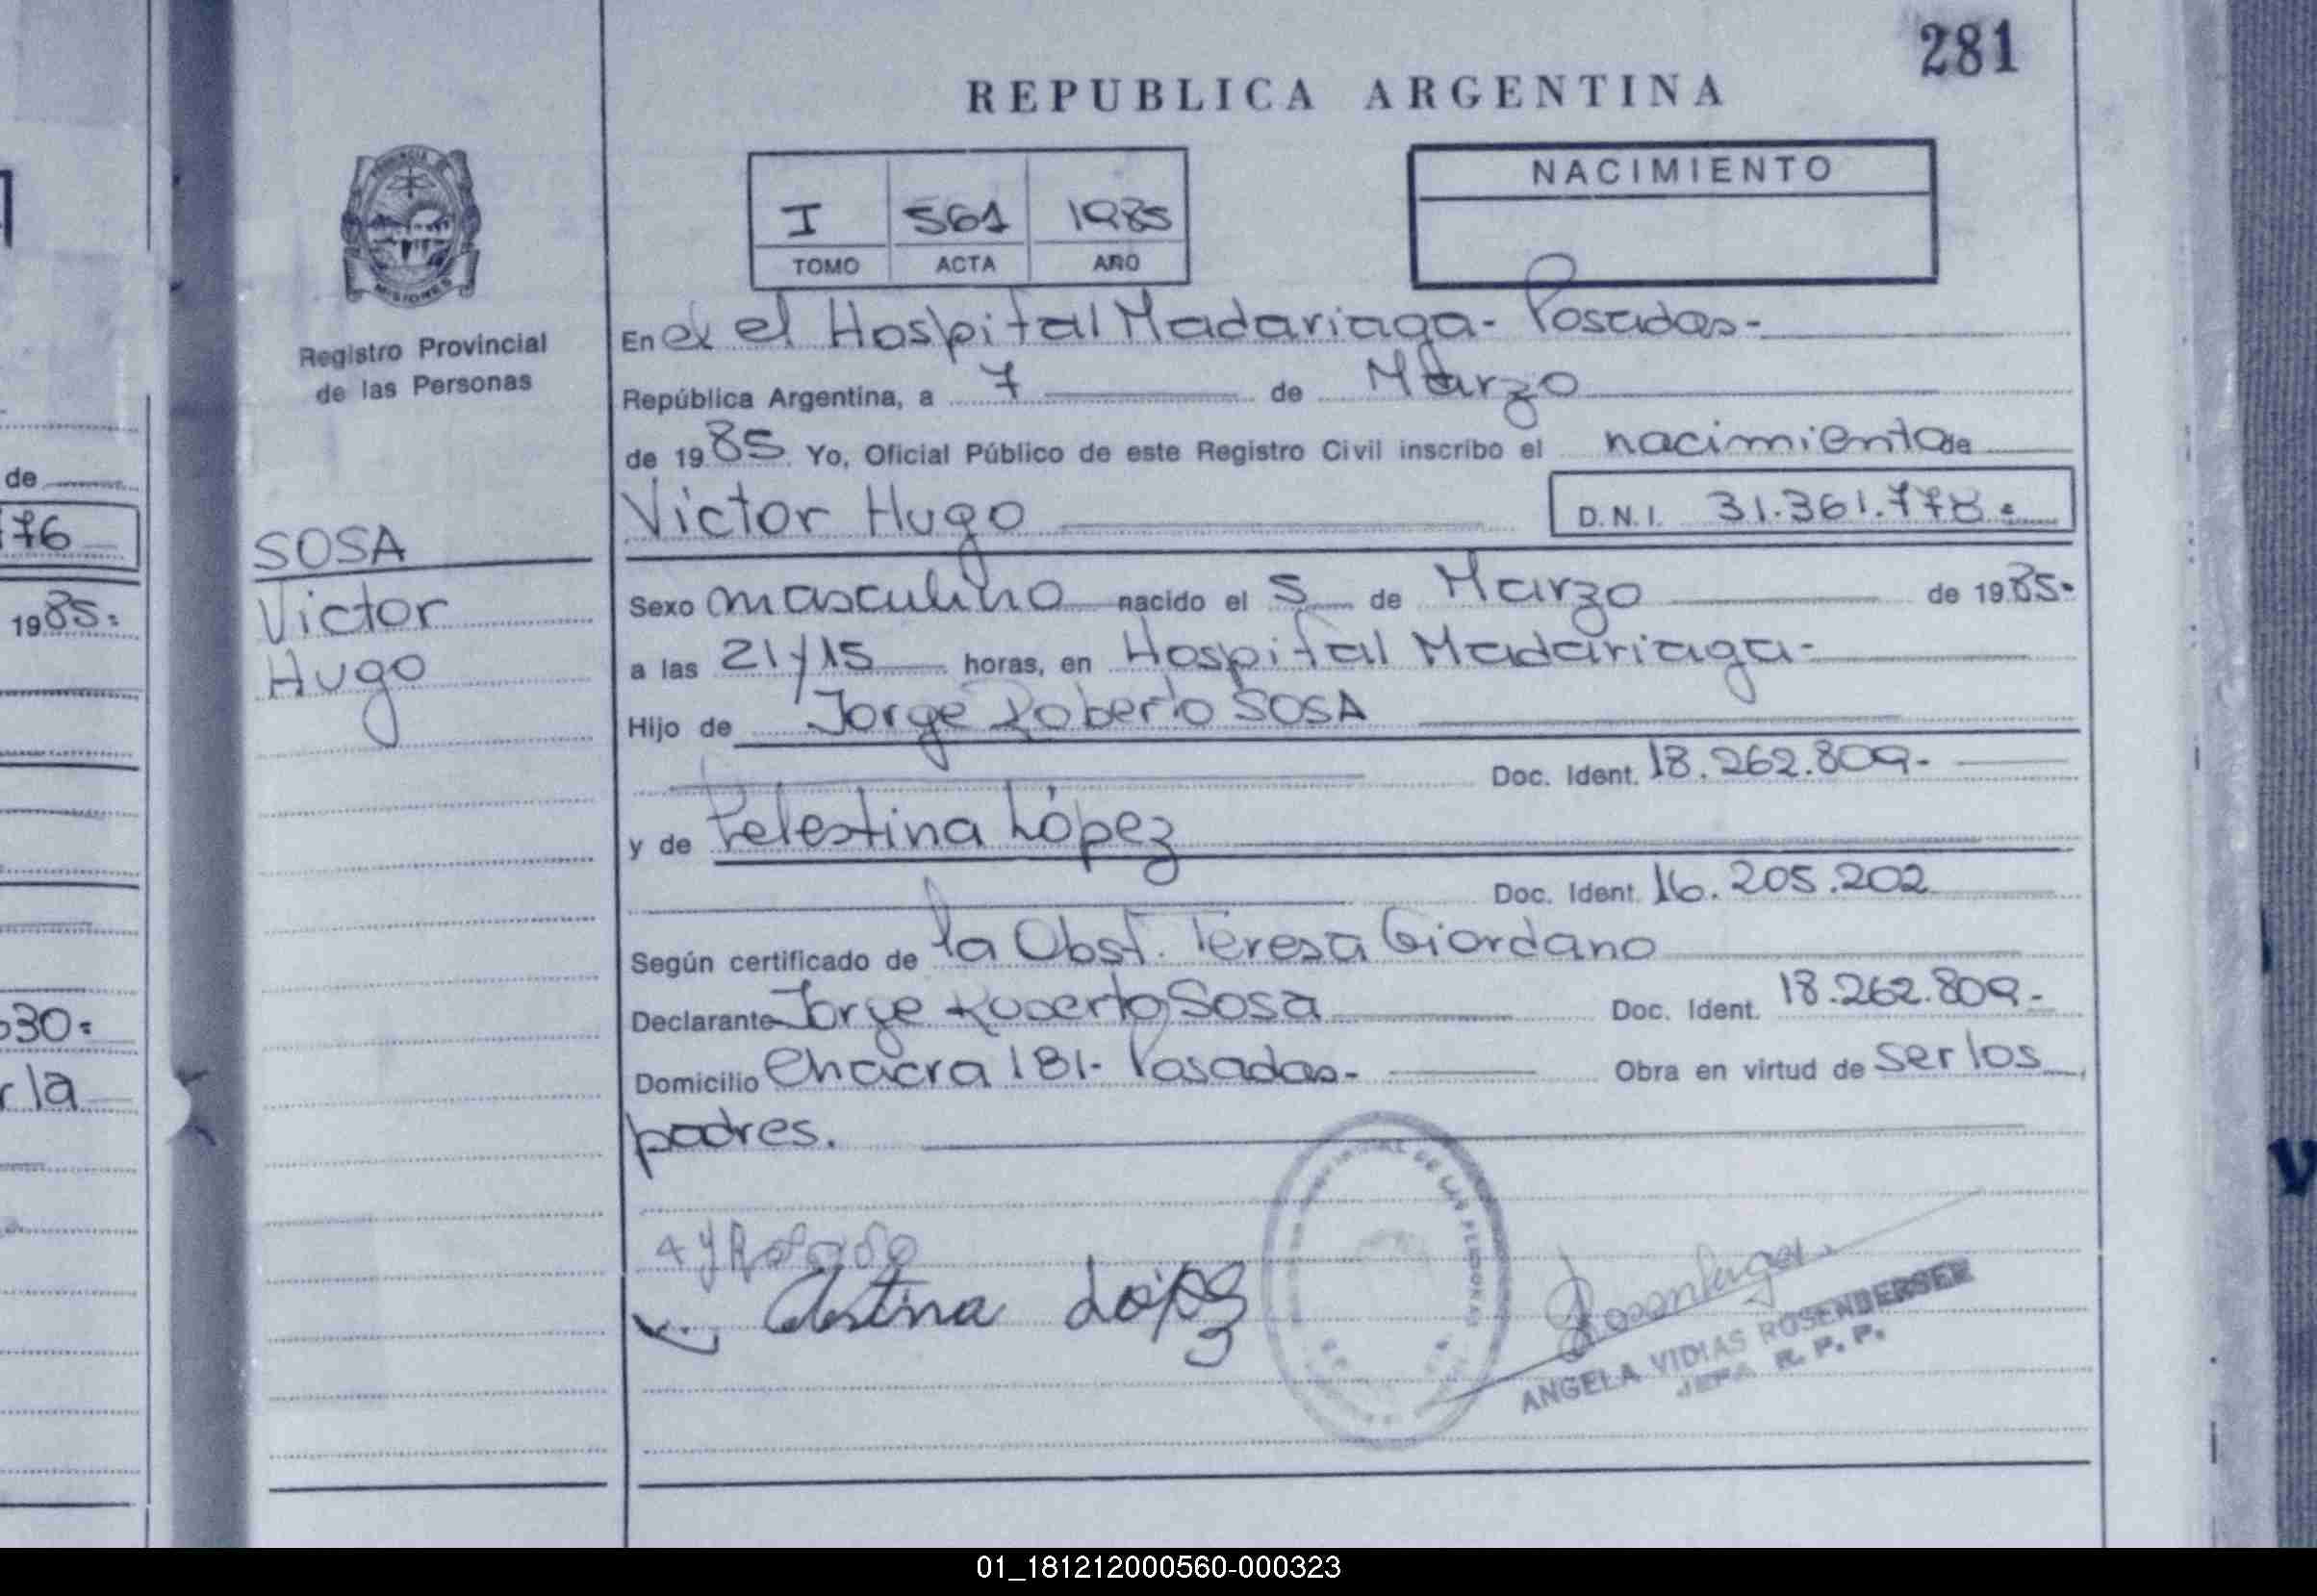 281
REPUBLICA ARGENTINA
I 561 1985
TOMO ACTA AÑO
NACIMIENTO
MISIONES
Registro Provincial
de las Personas
En el Hospital Madariaga- Posadas-
República Argentina, a 7 de Marzo
de 1985 Yo, Oficial Público de este Registro Civil inscribo el nacimiento de
Victor Hugo D.N.I. 31.361.778.=
SOSA
Victor
Hugo
Sexo masculino nacido el 5 de Marzo de 1985-
a las 21 y 15 horas, en Hospital Madariaga-
Hijo de Jorge Roberto SOSA
Doc. Ident. 18.262.809-
y de Celestina López
Doc. Ident. 16.205.202
Según certificado de la Obst. Teresa Giordano
Declarante Jorge Roberto Sosa Doc. Ident. 18.262.809-
Domicilio Chacra 181- Posadas- Obra en virtud de ser los
padres.
López
ANGELA VIDIAS
JEFA R. P. P.
de
76
1985=
030=
r la
01_181212000560-000323